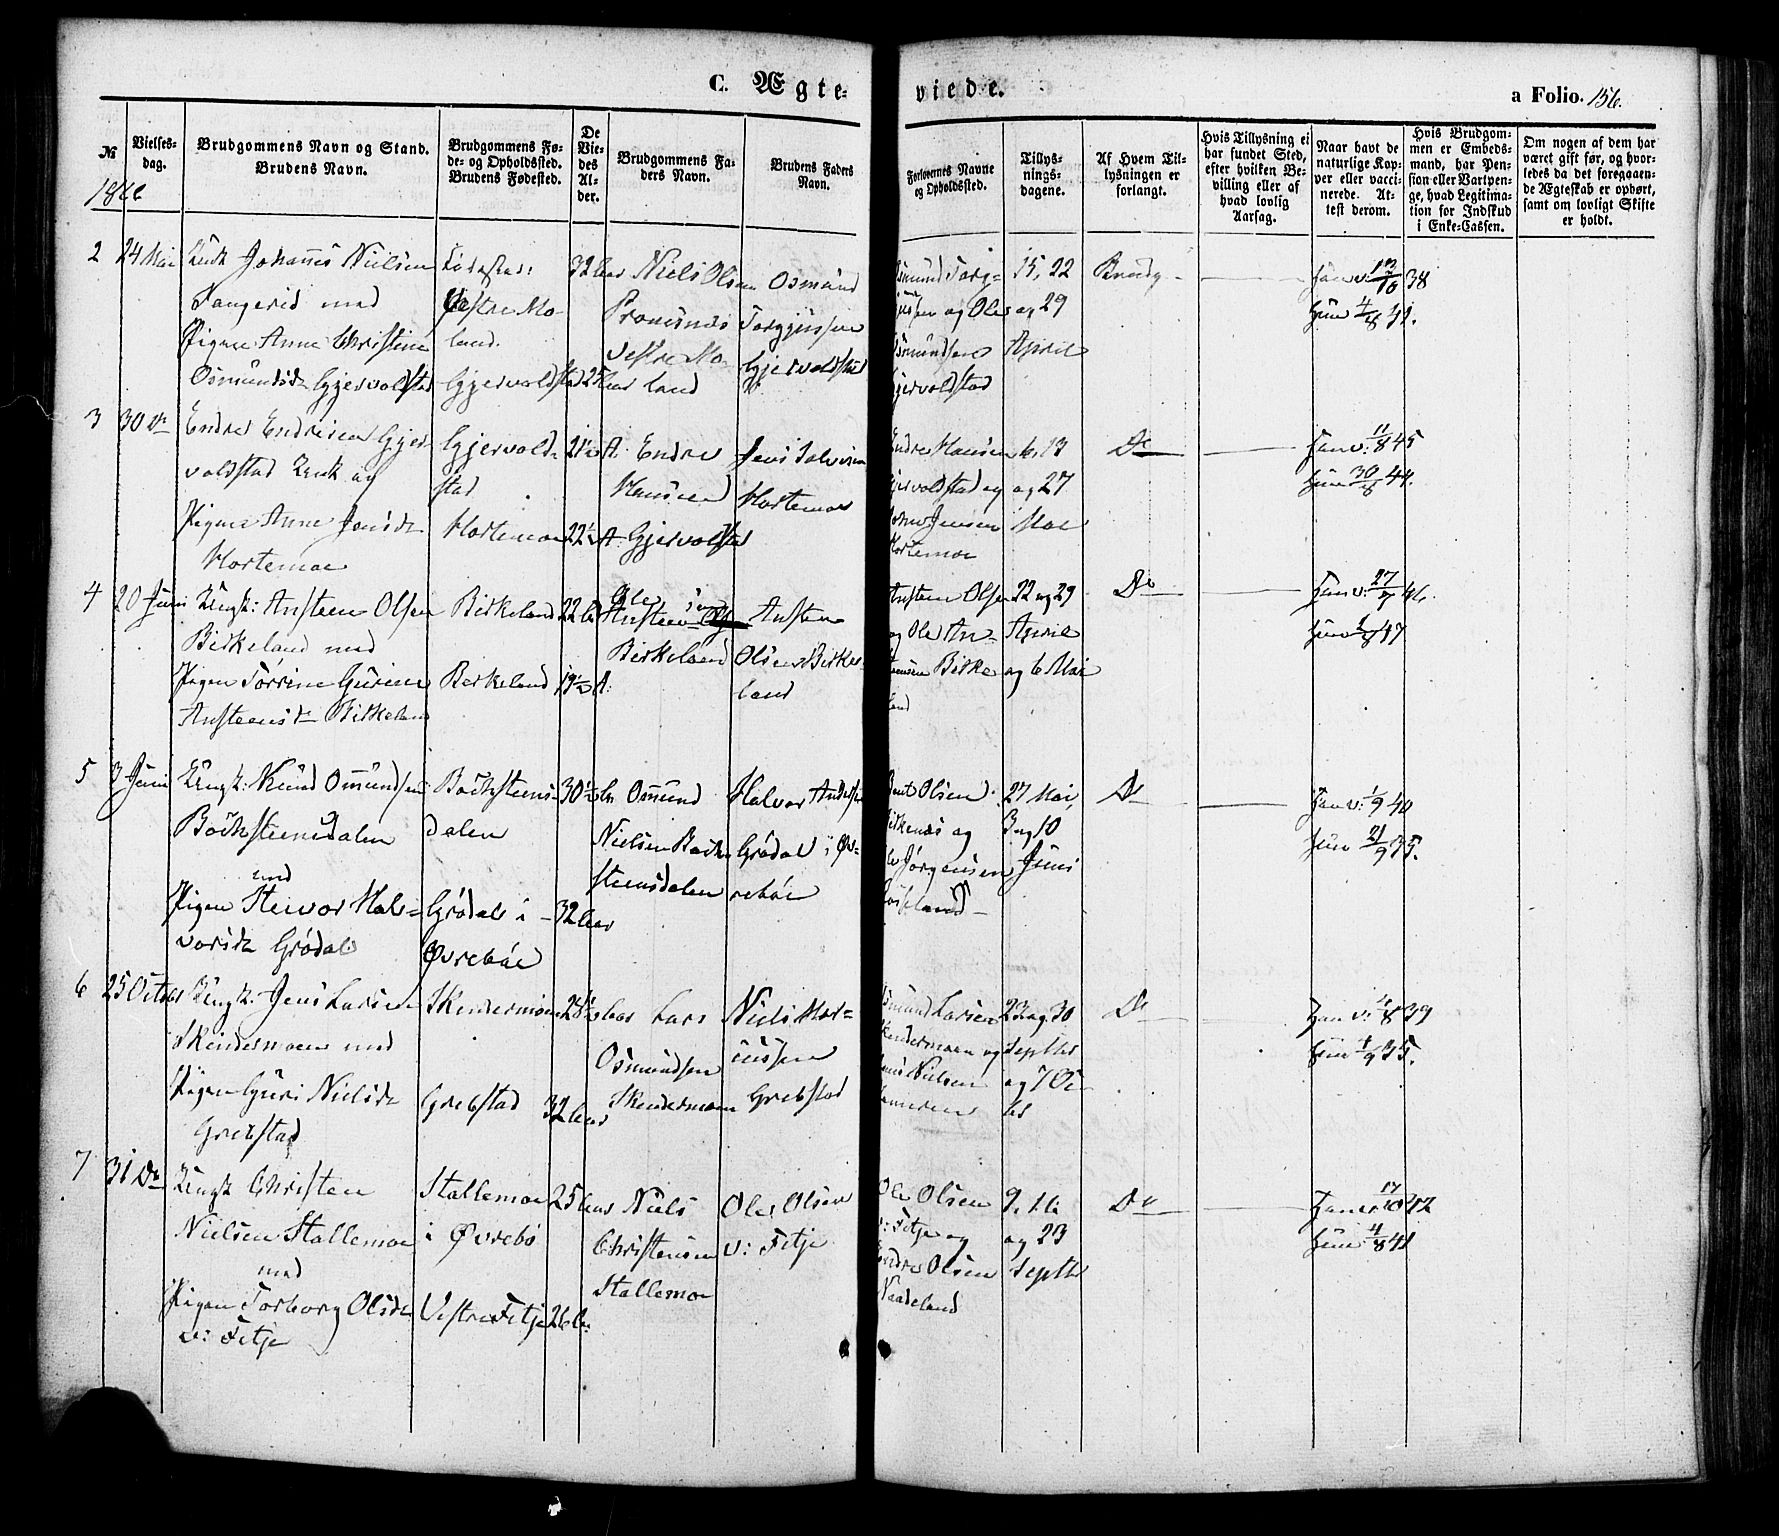 C. Ægte-
viede.
a Folio. 156.
№
Vielses-
dag.
Brudgommens Navn og Stand.
Brudens Navn.
Brudgommens Fø-
de- og Opholdssted.
Brudens Fødested.
De
Vie-
des
Al-
der.
Brudgommens Fa-
ders Navn.
Brudens Faders
Navn.
Forlovernes Navne
og Opholdssted.
Tillys-
nings-
dagene.
Af Hvem Til-
lysningen er
forlangt.
Hvis Tillysning ei
har fundet Sted,
efter hvilken Be-
villing eller af
hvad lovlig
Aarsag.
Naar havt de
naturlige Kop-
per eller vacci-
nerede. At-
test derom.
Hvis Brudgom-
men er Embeds-
mand, har Pen-
sion eller Vartpen-
ge, hvad Legitima-
tion for Indskud
i Enke-Cassen.
Om nogen af dem har
været gift før, og hvor-
ledes da det foregaaen-
de Ægteskab er ophørt,
samt om lovligt Skifte
er holdt.
1866
2
24 Mai
Enk Johannes Nielsen
Fangerid med
Pigen Anne Christine
Osmundsdr Gjervoldstad
Fødested:
Vestre Mo-
land.
Gjervoldstad
32 Aar
25 Aar
Niels Olsen
Vestre Mo-
land
Osmund
Torgjussen
Gjervoldstad
Osmund Torg-
jussen og Ole
Osmundsen
Gjervoldstad
15, 22
og 29
April
Brudg
Han v: 12/10 38
Hun 4/8 41.
3
30 Do
Endre Endresen Gjer
voldstad Enk og
Pigen Anne Jensdr
Hortemoe
Gjervold-
stad
Hortemoe
21½ A.
22½ A.
Endre
Hansen
Gjervoldstad
Jens Salvesen
Hortemoe
Endre Hansen
Gjervoldstad og
Jensen
Hortemoe
6, 13
og 27
Mai
Do
Han v: 11/8 45
Hun 30/8 44.
4
20 Juni
Ungk: Ansteen Olsen
Birkeland med
Pigen Torrine Gurine
Ansteensdr Birkeland
Birkeland
Birkeland
22 Aar
19½ A.
Ole
Ansteensen
Birkeland
Ansten
Olsen Birke-
land
Ansteen Olsen
og Ole An-
steensen Birke
land
22 og 29
April
og 6 Mai
Do
Han v: 27/7 46.
Hun /8 47
5
3 Juni
Ungk: Knud Omundsen
Bochsteensdalen
med
Pigen Steivor Hal-
vorsdr Grødal
Bochsteens-
dalen
Grødal i
Øvrebøe
30½
32 Aar
Omund
Nielsen Boch
steensdalen
Halvor Andersen
Grødal i Øv-
rebøe
Bent Olsen
Birkenæs og
Ole Jørgensen
27 Mai,
3 og 10
Juni
Do
Han v: 1/9 40
Hun 21/9 35.
6
25 Octobr
Ungk. Jens Larsen
Skindermoen med
Pigen Guri Nielsdr
Grebstad
Skindermoen
Grebstad
28½ Aar
32 Aar
Lars
Osmundsen
Skindermoen
Niels Mar-
cussen
Grebstad
Osmund Larsen
Skindermoen og
Nielsen
23 og 30
Septbr
og 7 Oc
tb
Do
Han v: 4/8 39
Hun 4/9 35.
7
31 Do
Ungk Christen
Nielsen Stallemoe
med
Pigen Torborg Olsdr
v: Fitje
Stallemoe
i Øvrebø
Vestre Fitje
25 Aar
26 A.
Niels
Christensen
Stallemoe
Ole Olsen
v: Fitje
Ole Olsen
v: Fitje og
Endre Olsen
Naadeland
9, 16
og 23
Septbr
Do
Han v: 17/10 42
Hun 4/8 41